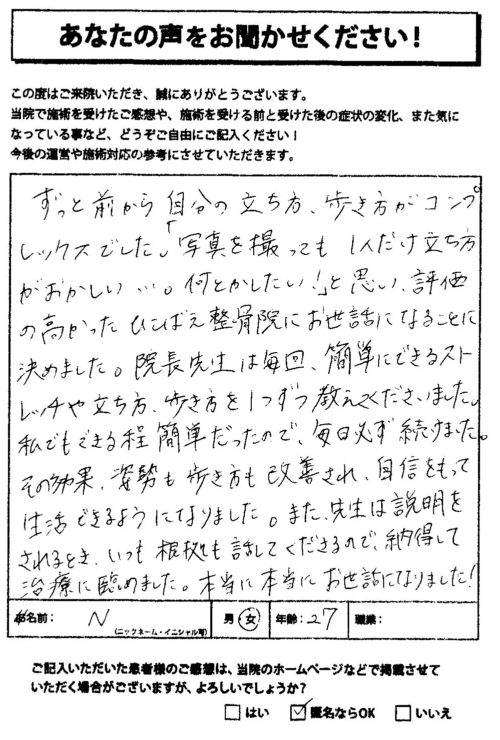 あなたの声をお聞かせください!
この度はご来院いただき、誠にありがとうございます。
当院で施術を受けたご感想や、施術を受ける前と受けた後の症状の変化、また気に
なっている事など、どうぞご自由にご記入ください!
今後の運営や施術対応の参考にさせていただきます。
ずっと前から自分の立ち方、歩き方がコンプ
レックスでした。「写真を撮っても1人だけ立ち方
がおかしい…。何とかしたい!」と思い、評価
の高かったひこばえ整骨院にお世話になることに
決めました。院長先生は毎回、簡単にできるスト
レッチや立ち方、歩き方を1つずつ教えてくださいました。
私でもできる程簡単だったので、毎日必ず続けました。
その効果、姿勢も歩き方も改善され、自信をもって
生活できるようになりました。また、先生は説明を
されるとき、いつも根拠も話してくださるので、納得して
治療に臨めました。本当に本当にお世話になりました!
お名前: N (ニックネーム・イニシャル可) 男 女 年齢: 27 職業:
ご記入いただいた患者様のご感想は、当院のホームページなどで掲載させて
いただく場合がございますが、よろしいでしょうか?
□はい ☑匿名ならOK □いいえ